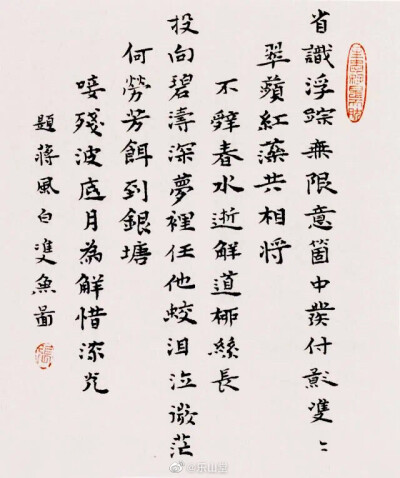 省識浮踪無限意箇中發付影雙〻
翠蘋紅藻共相將
不辭春水逝解道柳絲長
投向碧濤深夢裡任他蛟泪泣微茫
何勞芳餌到銀塘
唼殘波底月為解惜流光
題蔣風白雙魚圖
@乐山堂